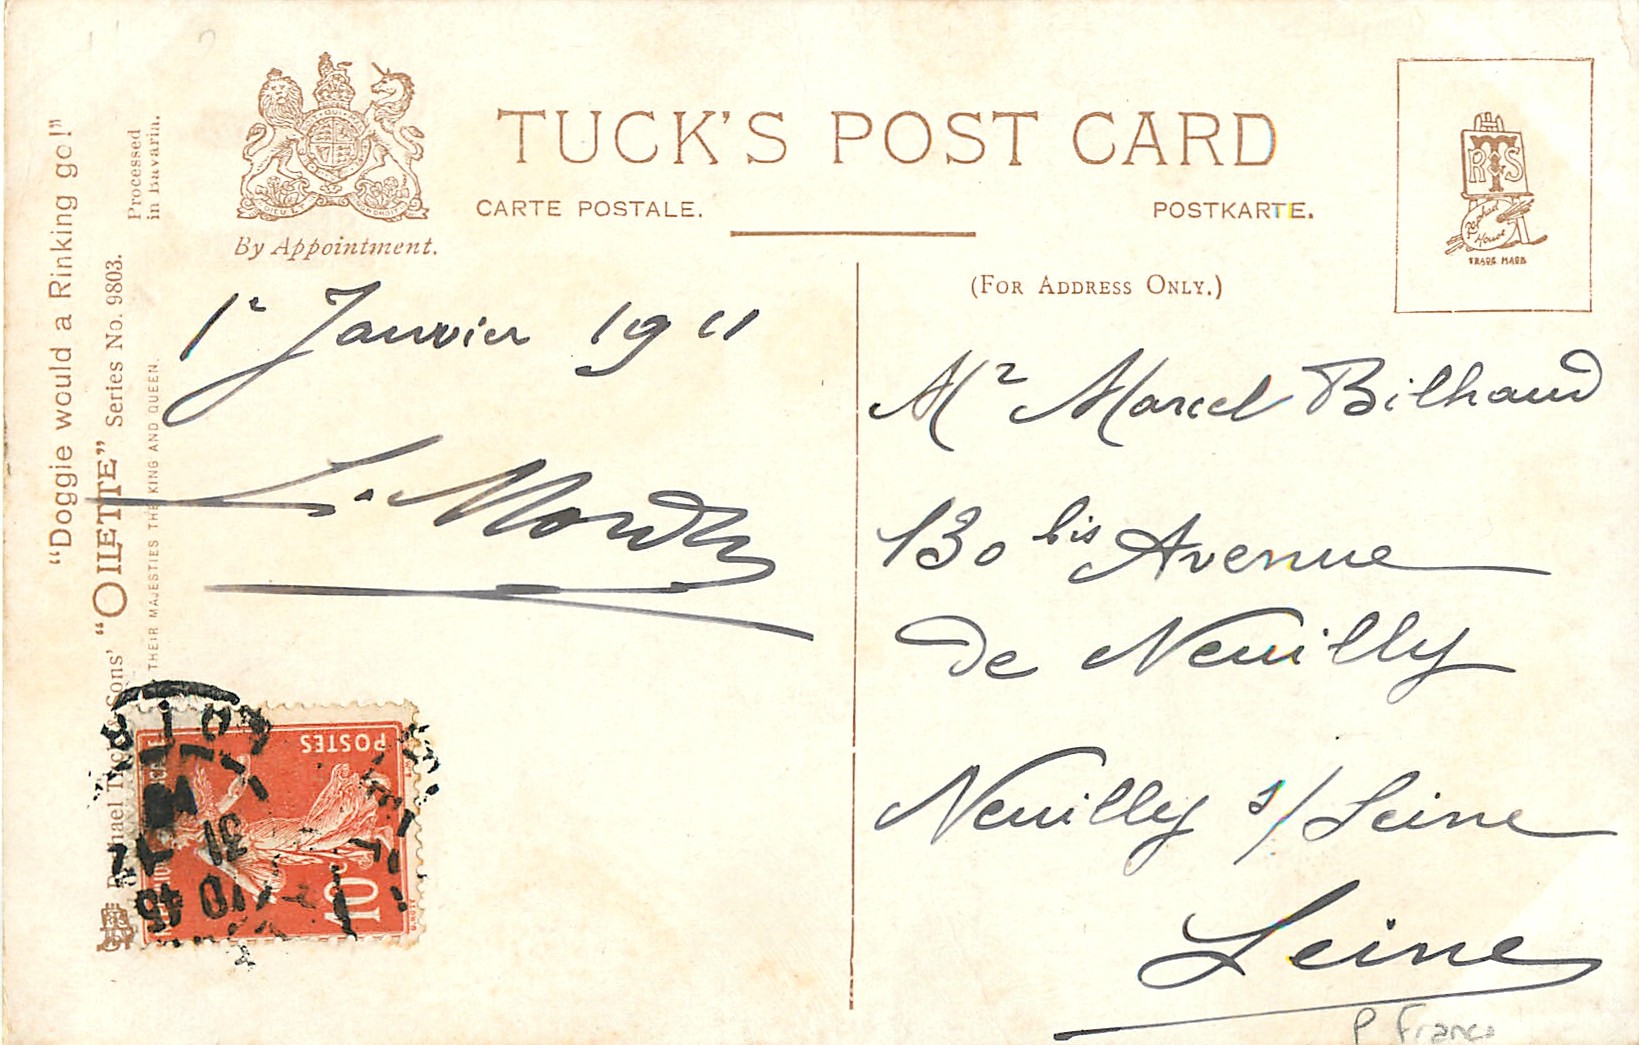 TUCK'S POST CARD
CARTE POSTALE.
POSTKARTE.
By Appointment.
(FOR ADDRESS ONLY.)
"Doggie would a Rinking go!"
"OILETTE" Series No. 9803.
Processed
in Bavaria.
THEIR MAJESTIES THE KING AND QUEEN.
RTS
Raphael
House
TRADE MARK
1r Janvier 1911
Mr Marcel Bilhaud
130 bis Avenue
de Neuilly
Neuilly s/ Seine
Seine
POSTES
10c
31
P France